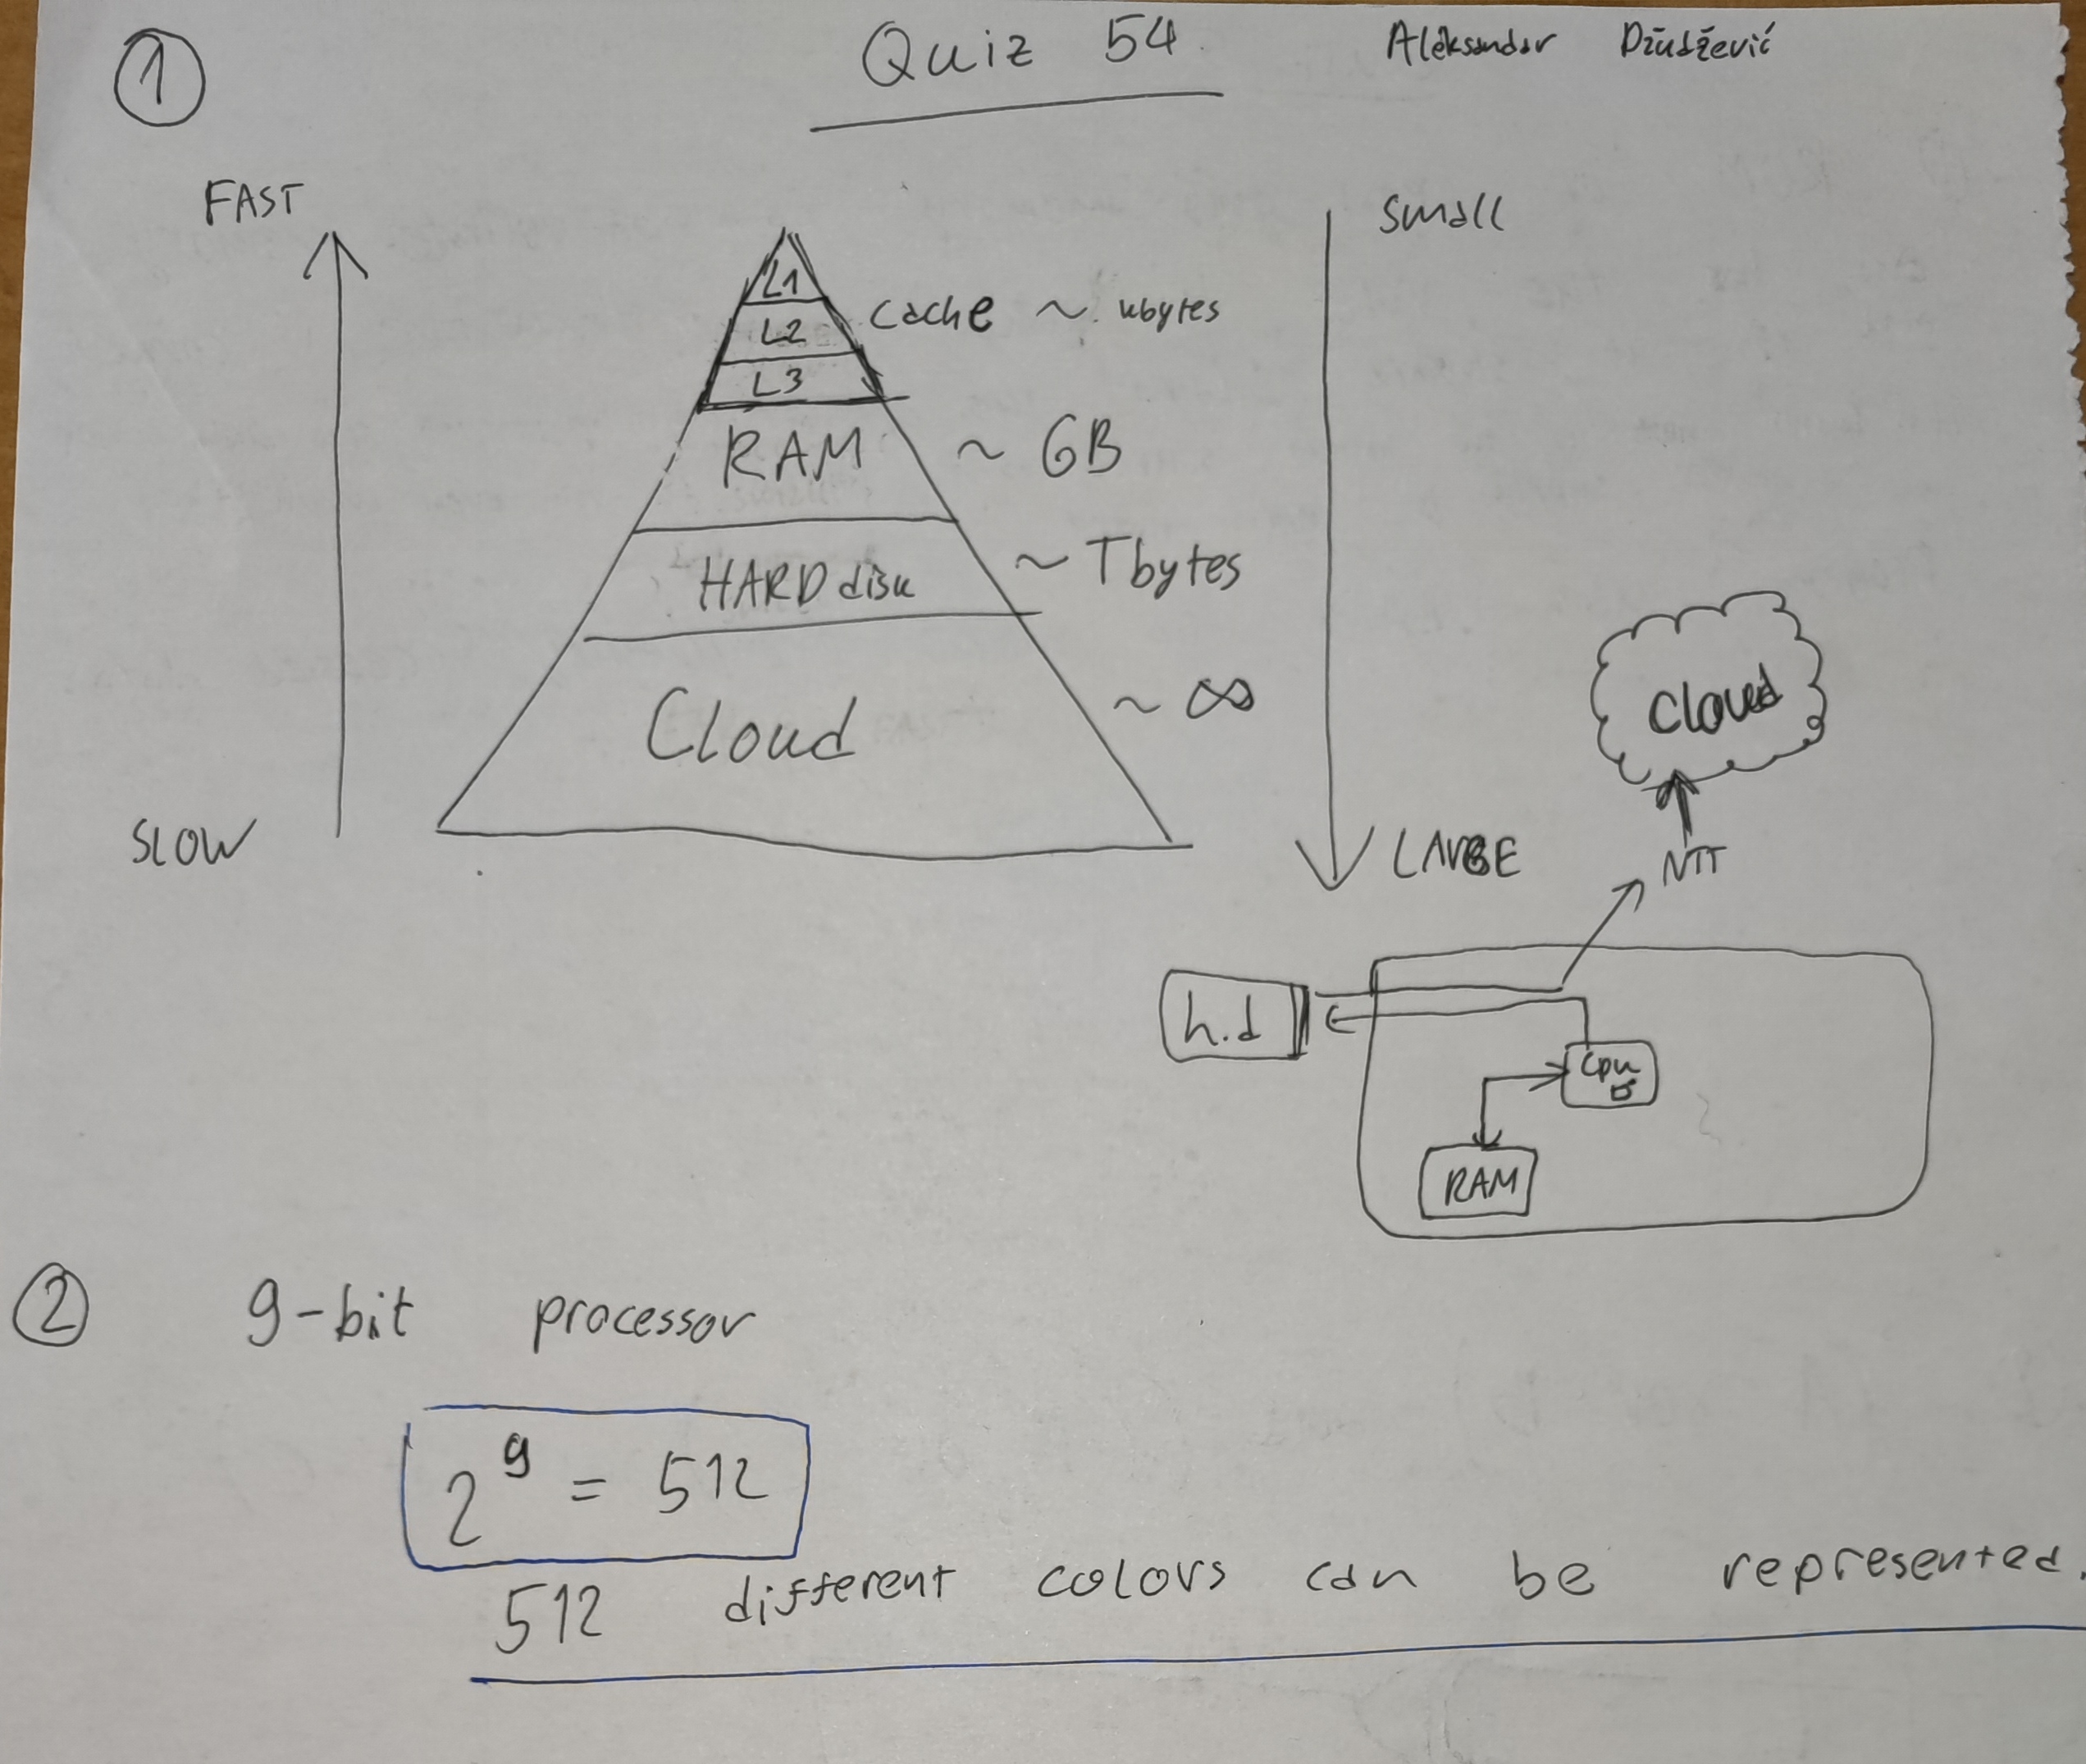 ①
Quiz 54
Aleksandar Džudžević
FAST
SLOW
L1
L2
L3
cache ~ kbytes
RAM ~ GB
HARD disk ~ Tbytes
Cloud ~ ∞
small
LARGE
cloud
NTT
h.d
cpu
RAM
② 9-bit processor
2⁹ = 512
512 different colors can be represented.